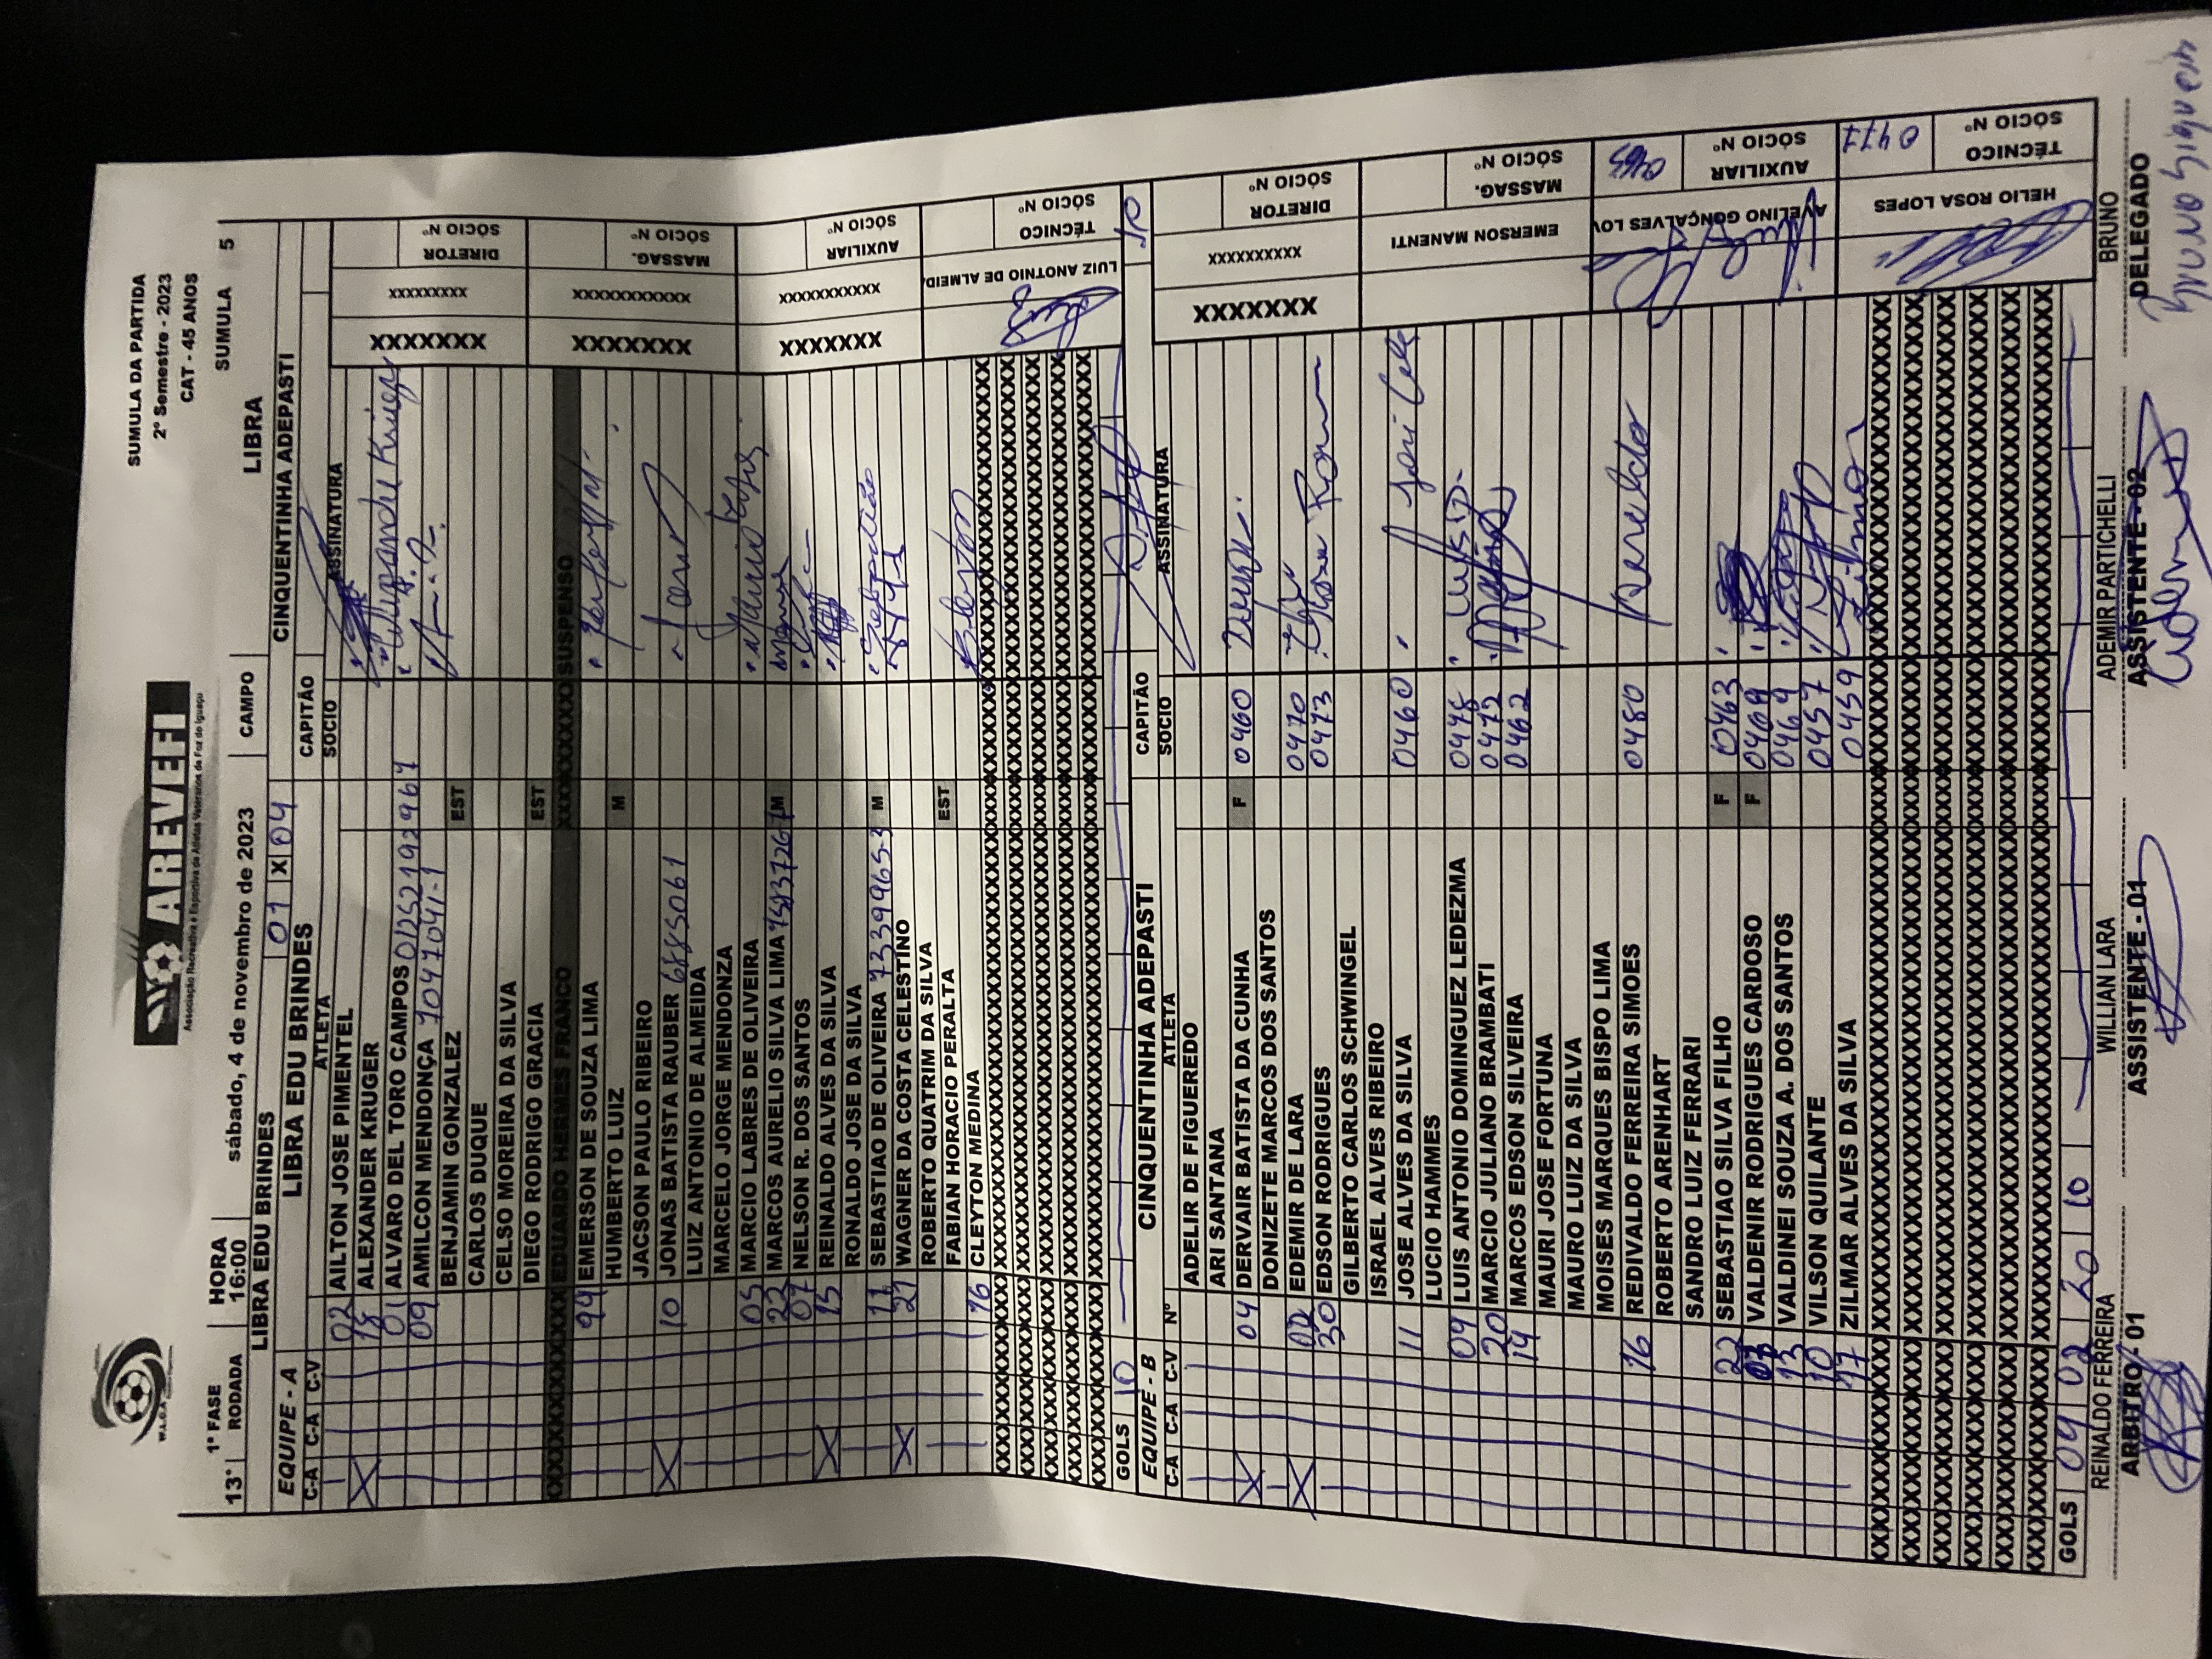 W.A.G.A
AREVEFI
Associação Recreativa e Esportiva de Atletas Veteranos de Foz do Iguaçu
SUMULA DA PARTIDA
2º Semestre - 2023
CAT - 45 ANOS
1ª FASE HORA
13ª RODADA 16:00 sábado, 4 de novembro de 2023 CAMPO LIBRA SUMULA 5
LIBRA EDU BRINDES 01 X 04 CINQUENTINHA ADEPASTI
EQUIPE - A LIBRA EDU BRINDES CAPITÃO
C-A C-A C-V ATLETA SOCIO ASSINATURA
02 AILTON JOSE PIMENTEL
X 18 ALEXANDER KRUGER
01 ALVARO DEL TORO CAMPOS 01252192967
09 AMILCON MENDONÇA 10470941-1
BENJAMIN GONZALEZ EST
CARLOS DUQUE
CELSO MOREIRA DA SILVA
DIEGO RODRIGO GRACIA EST
EDUARDO HERMES FRANCO SUSPENSO
99 EMERSON DE SOUZA LIMA
HUMBERTO LUIZ M
JACSON PAULO RIBEIRO
X 10 JONAS BATISTA RAUBER 6885061
LUIZ ANTONIO DE ALMEIDA
MARCELO JORGE MENDONZA
05 MARCIO LABRES DE OLIVEIRA
22 MARCOS AURELIO SILVA LIMA M
07 NELSON R. DOS SANTOS
X 15 REINALDO ALVES DA SILVA
RONALDO JOSE DA SILVA
11 SEBASTIAO DE OLIVEIRA 7339965-3 M
X 21 WAGNER DA COSTA CELESTINO
ROBERTO QUATRIM DA SILVA
FABIAN HORACIO PERALTA EST
16 CLEYTON MEDINA
XXXXXXX XXXXXXXXX DIRETOR SÓCIO Nº
XXXXXXX XXXXXXXXXXX MASSAG. SÓCIO Nº
XXXXXXX XXXXXXXXXXX AUXILIAR SÓCIO Nº
LUIZ ANOTNIO DE ALMEID TÉCNICO SÓCIO Nº
GOLS 10
EQUIPE - B CINQUENTINHA ADEPASTI CAPITÃO
C-A C-A C-V Nº ATLETA SOCIO ASSINATURA
ADELIR DE FIGUEREDO
ARI SANTANA
X 04 DERVAIR BATISTA DA CUNHA F 0460
DONIZETE MARCOS DOS SANTOS
X EDEMIR DE LARA 0470
30 EDSON RODRIGUES 0473
GILBERTO CARLOS SCHWINGEL
ISRAEL ALVES RIBEIRO
11 JOSE ALVES DA SILVA 0460
LUCIO HAMMES
09 LUIS ANTONIO DOMINGUEZ LEDEZMA 0478
20 MARCIO JULIANO BRAMBATI 0472
14 MARCOS EDSON SILVEIRA 0462
MAURI JOSE FORTUNA
MAURO LUIZ DA SILVA
MOISES MARQUES BISPO LIMA
16 REDIVALDO FERREIRA SIMOES 0480
ROBERTO ARENHART
SANDRO LUIZ FERRARI
22 SEBASTIAO SILVA FILHO F 0463
07 VALDENIR RODRIGUES CARDOSO F
13 VALDINEI SOUZA A. DOS SANTOS 0464
10 VILSON QUILANTE 0457
17 ZILMAR ALVES DA SILVA 0459
XXXXXXX XXXXXXXXXX DIRETOR SÓCIO Nº
EMERSON MANENTI MASSAG. SÓCIO Nº
AVELINO GONÇALVES LOV AUXILIAR SÓCIO Nº
HELIO ROSA LOPES 0477 TÉCNICO SÓCIO Nº
GOLS 09 02 20 10
REINALDO FERREIRA WILLIAN LARA ADEMIR PARTICHELLI BRUNO
ARBITRO - 01 ASSISTENTE - 01 ASSISTENTE - 02 DELEGADO